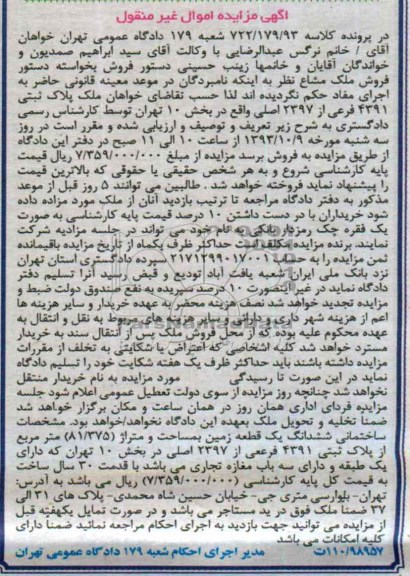 آگهی مزایده اموال غیر منقول
در پرونده کلاسه ۷۲۲/۱۷۹/۹۳ شعبه ۱۷۹ دادگاه عمومی تهران خواهان
آقای / خانم نرگس عبدالرضایی با وکالت آقای سید ابراهیم صمدیون و
خواندگان آقایان و خانمها زینب حسینی دستور فروش بخواسته دستور
فروش ملک مشاع نظر به اینکه نامبردگان در موعد معینه قانونی حاضر به
اجرای مفاد حکم نگردیده اند لذا حسب تقاضای خواهان ملک پلاک ثبتی
۴۳۹۱ فرعی از ۲۳۹۷ اصلی واقع در بخش ۱۰ تهران توسط کارشناس رسمی
دادگستری به شرح زیر تعریف و توصیف و ارزیابی شده و مقرر است در روز
سه شنبه مورخه ۱۳۹۳/۱۰/۹ از ساعت ۱۰ الی ۱۱ صبح در دفتر این دادگاه
از طریق مزایده به فروش برسد مزایده از مبلغ ۷/۳۵۹/۰۰۰/۰۰۰ ریال قیمت
پایه کارشناسی شروع و به هر شخص حقیقی یا حقوقی که بالاترین قیمت
را پیشنهاد نماید فروخته خواهد شد . طالبین می توانند ۵ روز قبل از موعد
مذکور به دفتر دادگاه مراجعه تا ترتیب بازدید آنان از ملک مورد مزاده داده
شود خریداران با در دست داشتن ۱۰ درصد قیمت پایه کارشناسی به صورت
یک فقره چک رمزدار بانکی به نام خود می تواند در جلسه مزادیه شرکت
نمایند. برنده مزایده مکلف است حداکثر ظرف یکماه از تاریخ مزایده باقیمانده
ثمن مزایده را به حساب ۲۱۷۱۲۹۹۰۱۷۰۰۱ سپرده دادگستری استان تهران
نزد بانک ملی ایران شعبه یافت آباد تودیع و قبض رسید آنرا تسلیم دفتر
دادگاه نماید در غیر اینصورت ۱۰ درصد سپرده به نفع صندوق دولت ضبط و
مزایده تجدید خواهد شد نصف هزینه محضر به عهده خریدار و سایر هزینه ها
اعم از هزینه شهر داری و دارائی و سایر هزینه های مربوط به نقل و انتقال به
عهده محکوم علیه بوده که از محل فروش ملک پس از انتقال سند به خریدار
مسترد خواهد شد کلیه اشخاصی که اعتراض یا شکایتی به تخلف از مقررات
مزایده داشته باشند باید حداکثر ظرف یک هفته شکایت خود را تسلیم دادگاه
نماید در این صورت تا رسیدگی مورد مزایده به نام خریدار منتقل
نخواهد شد چنانچه روز مزایده از سوی دولت تعطیل عمومی اعلام شود جلسه
مزایده فردای اداری همان روز در همان ساعت و مکان برگزار خواهد شد
ضمنا تخلیه و تحویل ملک بعهده این دادگاه نخواهد/خواهد بود. مشخصات
ساختمانی ششدانگ یک قطعه زمین بمساحت و متراژ (۸۱/۳۷۵) متر مربع
از پلاک ثبتی ۴۳۹۱ فرعی از ۲۳۹۷ اصلی در بخش ۱۰ تهران که دارای
یک طبقه و دارای سه باب مغازه تجاری می باشد با قدمت ۳۰ سال ساخت
به قیمت کل پایه کارشناسی (۷/۳۵۹/۰۰۰/۰۰۰) ریال می باشد به آدرس:
تهران- بلوارسی متری جی- خیابان حسین شاه محمدی- پلاک های ۳۱ الی
۳۷ ضمنا ملک فوق در ید مستاجر می باشد و در صورت تمایل یکهفته قبل
از مزایده می توانید جهت بازدید به اجرای احکام مراجعه نمائید ضمنا دارای
کلیه امکانات می باشد
۱۱۰/۹۸۹۵۷ت مدیر اجرای احکام شعبه ۱۷۹ دادگاه عمومی تهران